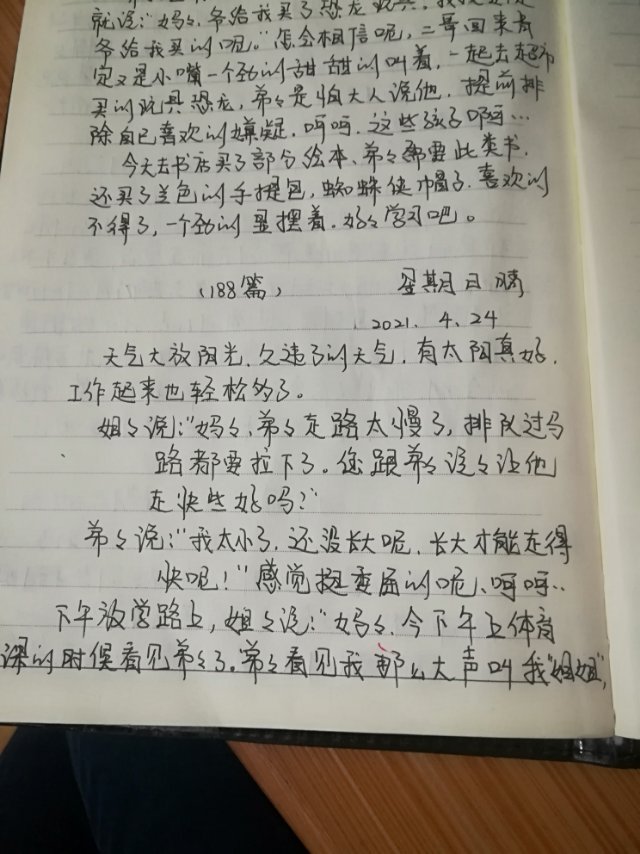 就说:"妈々,爷给我买了恐龙玩具。我
爷给我买的呢。"怎会相信呢,二哥回来肯
定又是小嘴一个劲的甜甜的叫着,一起去超市
买的玩具恐龙,弟々是怕大人说他,提前排
除自己喜欢的嫌疑,呵呵,这些孩子啊…
今天去书店买了部分绘本、弟々都要此类书,
还买了兰色的手提包,蜘蛛侠帽子,喜欢的
不得了,一个劲的显摆着,好々学习吧。
(188篇) 星期日 晴
2021.4.24
天气大放阳光,久违了的天气,有太阳真好,
工作起来也轻松的了。
姐々说:"妈々,弟々走路太慢了,排队过马
路都要拉下了。您跟弟々说々让他
走快些好吗?"
弟々说:"我太小了,还没长大呢,长大才能走得
快呢!"感觉挺委屈的呢、呵呵..
下午放学路上,姐々说:"妈々,今下午上体育
课的时候看见弟々了。弟々看见我那么大声叫我"姐姐",